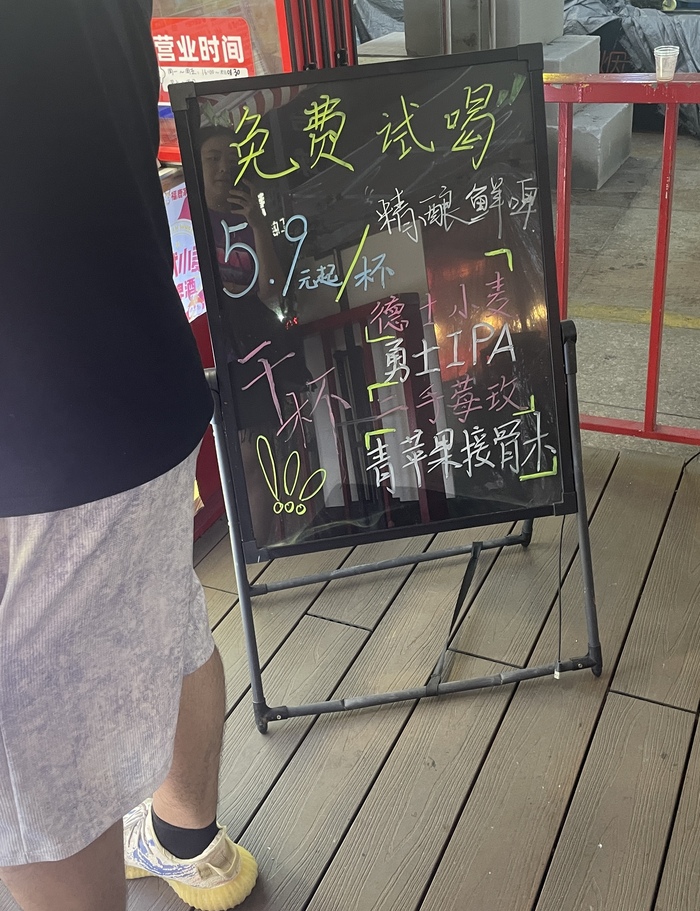 营业时间
免费试喝
精酿鲜啤
5.9元起/杯
德士小麦
勇士IPA
干杯
青苹果接骨木